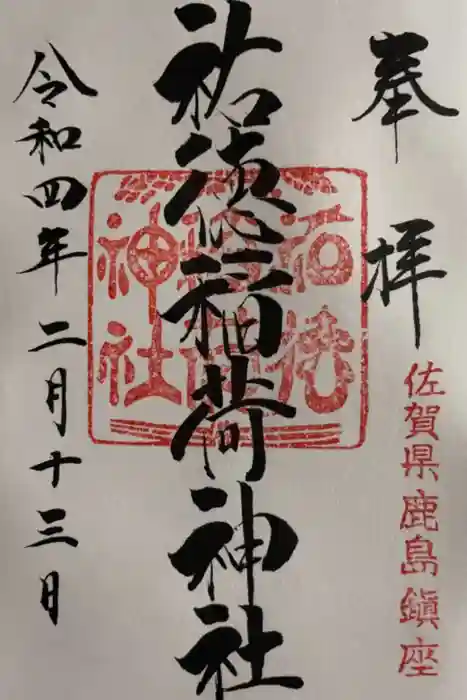 奉拝
佐賀県鹿島鎮座
祐徳稲荷神社
令和四年二月十三日